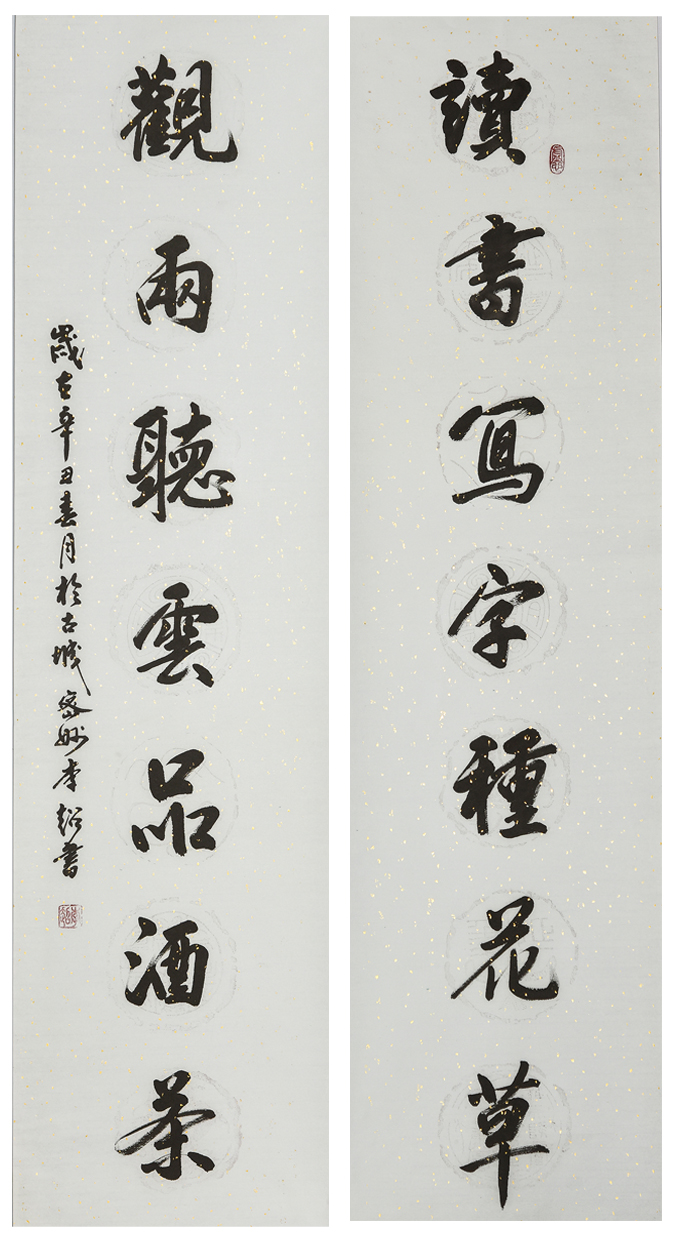 讀書寫字種花草
觀雨聽雲品酒茶
歲在辛丑春月於古城 李 書